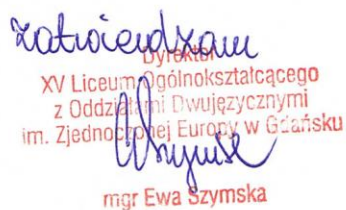 zatwierdzam
Dyrektor
XV Liceum Ogólnokształcącego
z Oddziałami Dwujęzycznymi
im. Zjednoczonej Europy w Gdańsku
mgr Ewa Szymska